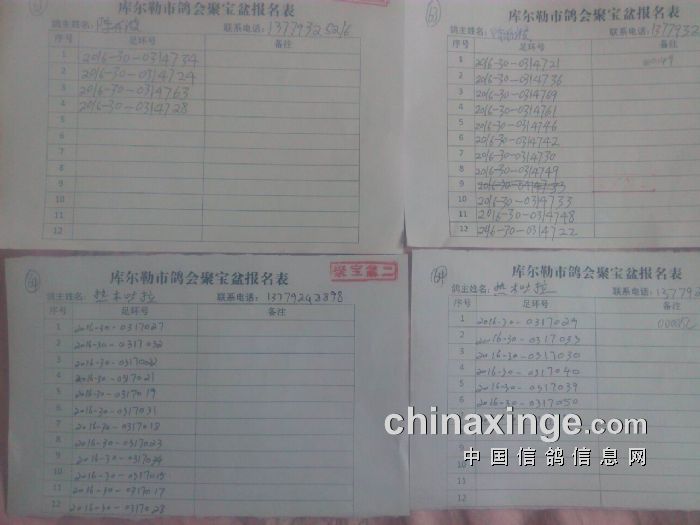 库尔勒市鸽会聚宝盆报名表
鸽主姓名: 联系电话: 1377932 5216
序号 足环号 备注
1 2016-30-0314734
2 2016-30-0314724
3 2016-30-0314763
4 2016-30-0314728
5
6
7
8
9
10
11
12
63
库尔勒市鸽会聚宝盆报名表
鸽主姓名: 联系电话: 1377932
序号 足环号 备注
1 2016-30-0314721
2 2016-30-0314736
3 2016-30-0314769
4 2016-30-0314761
5 2016-30-0314746
6 2016-30-0314742
7 2016-30-0314730
8 2016-30-0314749
9
10 2016-30-0314733
11 2016-30-0314748
12 2016-30-0314722
64
库尔勒市鸽会聚宝盆报名表
聚宝盆二
鸽主姓名: 热木吐拉 联系电话: 13779242898
序号 足环号 备注
1 2016-30-0317027
2 2016-30-0317032
3 2016-30-0317022
4 2016-30-0317021
5 2016-30-0317019
6 2016-30-0317031
7 2016-30-0317018
8 2016-30-0317023
9 2016-30-0317034
10 2016-30-0317015
11 2016-30-0317017
12 2016-30-0317028
64
库尔勒市鸽会聚宝盆报名表
鸽主姓名: 热木吐拉 联系电话: 137792
序号 足环号 备注
1 2016-30-0317029
2 2016-30-0317035
3 2016-30-0317030
4 2016-30-0317040
5 2016-30-0317039
6 2016-30-0317050
7
8
9
10
11
12
chinaxinge.com
中国信鸽信息网